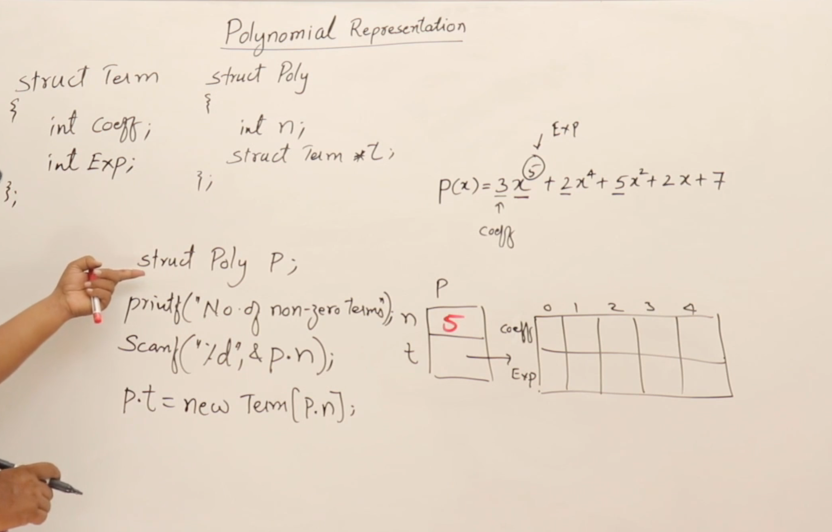 Polynomial Representation
struct Term
{
int coeff;
int Exp;
};
struct Poly
{
int n;
struct Term *t;
};
Exp
P(x) = 3x⁵ + 2x⁴ + 5x² + 2x + 7
coeff
struct Poly P;
printf("No. of non-zero Terms");
Scanf("%d", & p.n);
p.t = new Term[p.n];
P
n 5
t
0 1 2 3 4
coeff
Exp